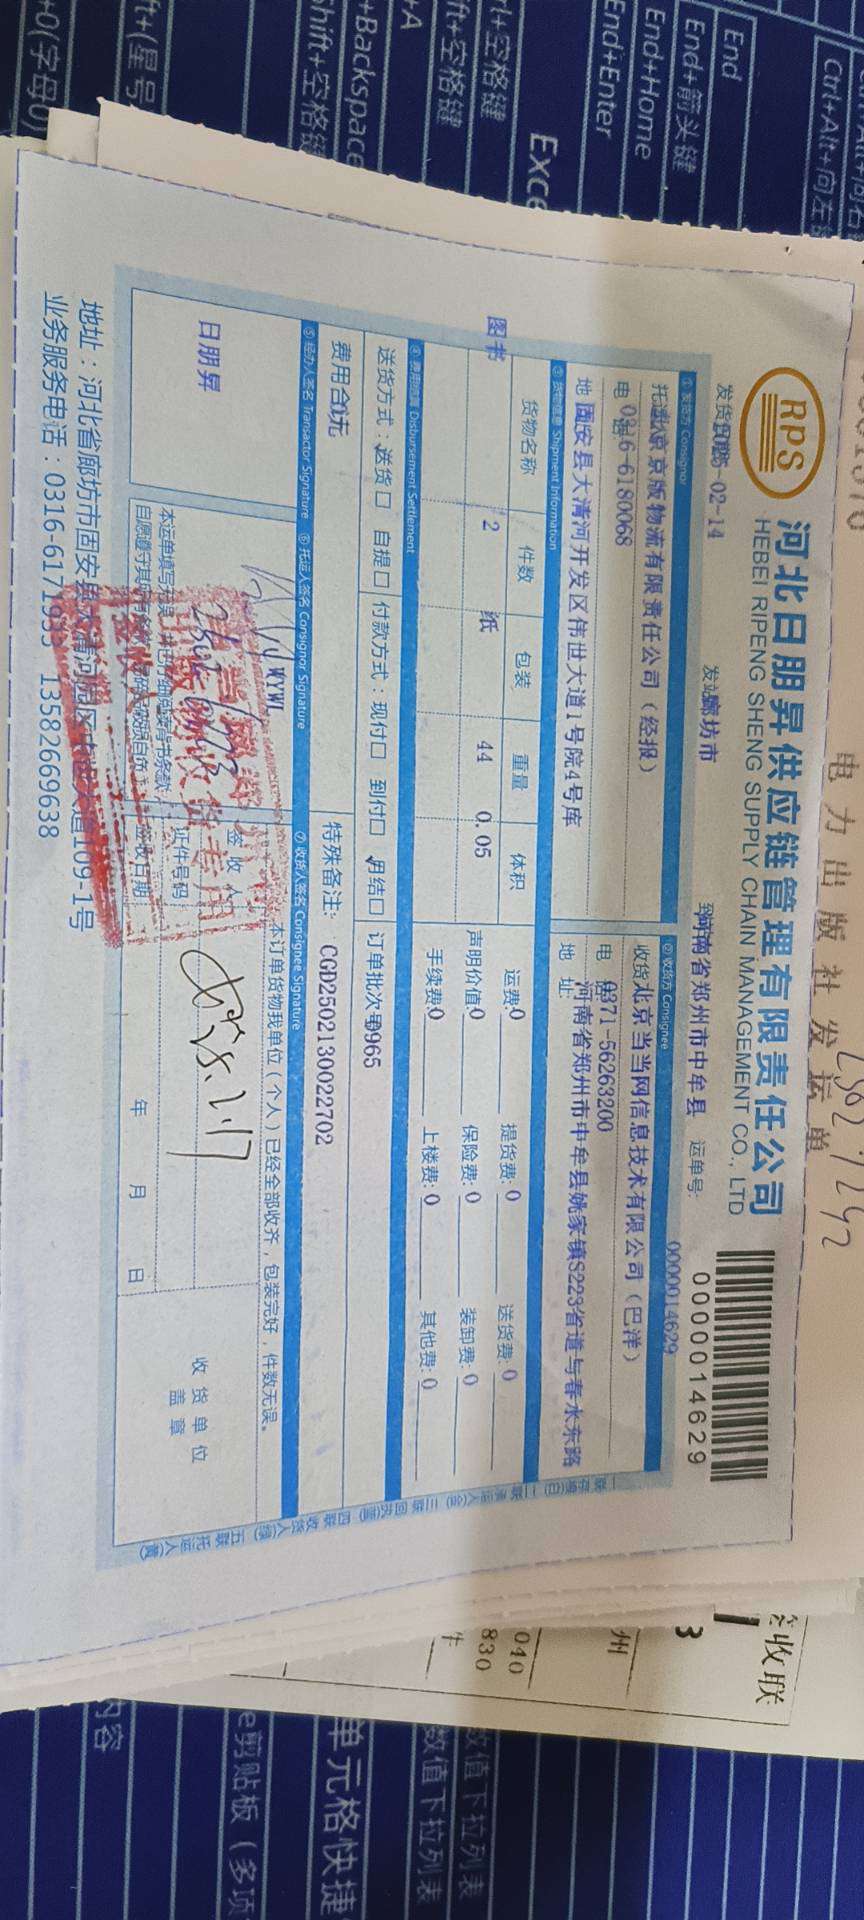 RPS
河北日朋昇供应链管理有限责任公司
HEBEI RIPENG SHENG SUPPLY CHAIN MANAGEMENT CO., LTD
0000014629
2025-02-14
廊坊市
河南省郑州市中牟县
运单号:
0000014629
①发货方 Consignor
②收货方 Consignee
北京京版物流有限责任公司（经报）
北京当当网信息技术有限公司（巴洋）
0316-6180068
0371-56263200
固安县大清河开发区伟世大道1号院4号库
河南省郑州市中牟县姚家镇S223省道与春水东路
③货物信息 Shipment Information
货物名称 件数 包装 重量 体积
图书 2 纸 44 0.05
运费:0 提货费:0 送货费:0
声明价值:0 保险费:0 装卸费:0
手续费:0 上楼费:0 其他费:0
④费用结算 Disbursement Settlement
送货方式：送货□ 自提□ 付款方式：现付□ 到付□ 月结□ 订单批次号
9965
费用合 0元
特殊备注: CGD2502130022702
⑤经办人签名 Transactor Signature ⑥托运人签名 Consignor Signature ⑦收货人签名 Consignee Signature
日朋昇
WYWL
本订单货物我单位（个人）已经全部收齐，包装完好，件数无误。
签收人
证件号码
签收日期
年 月 日
收货单位
盖章
业务服务电话：0316-6171933 13582669638
电力出版社发运单
签收联
州
040
830
End
End+箭头键
End+Home
End+Enter
Ctrl+Alt+向左
+Backspace
Shift+空格键
单元格快捷
数值下拉列表
e剪贴板（多项
内容